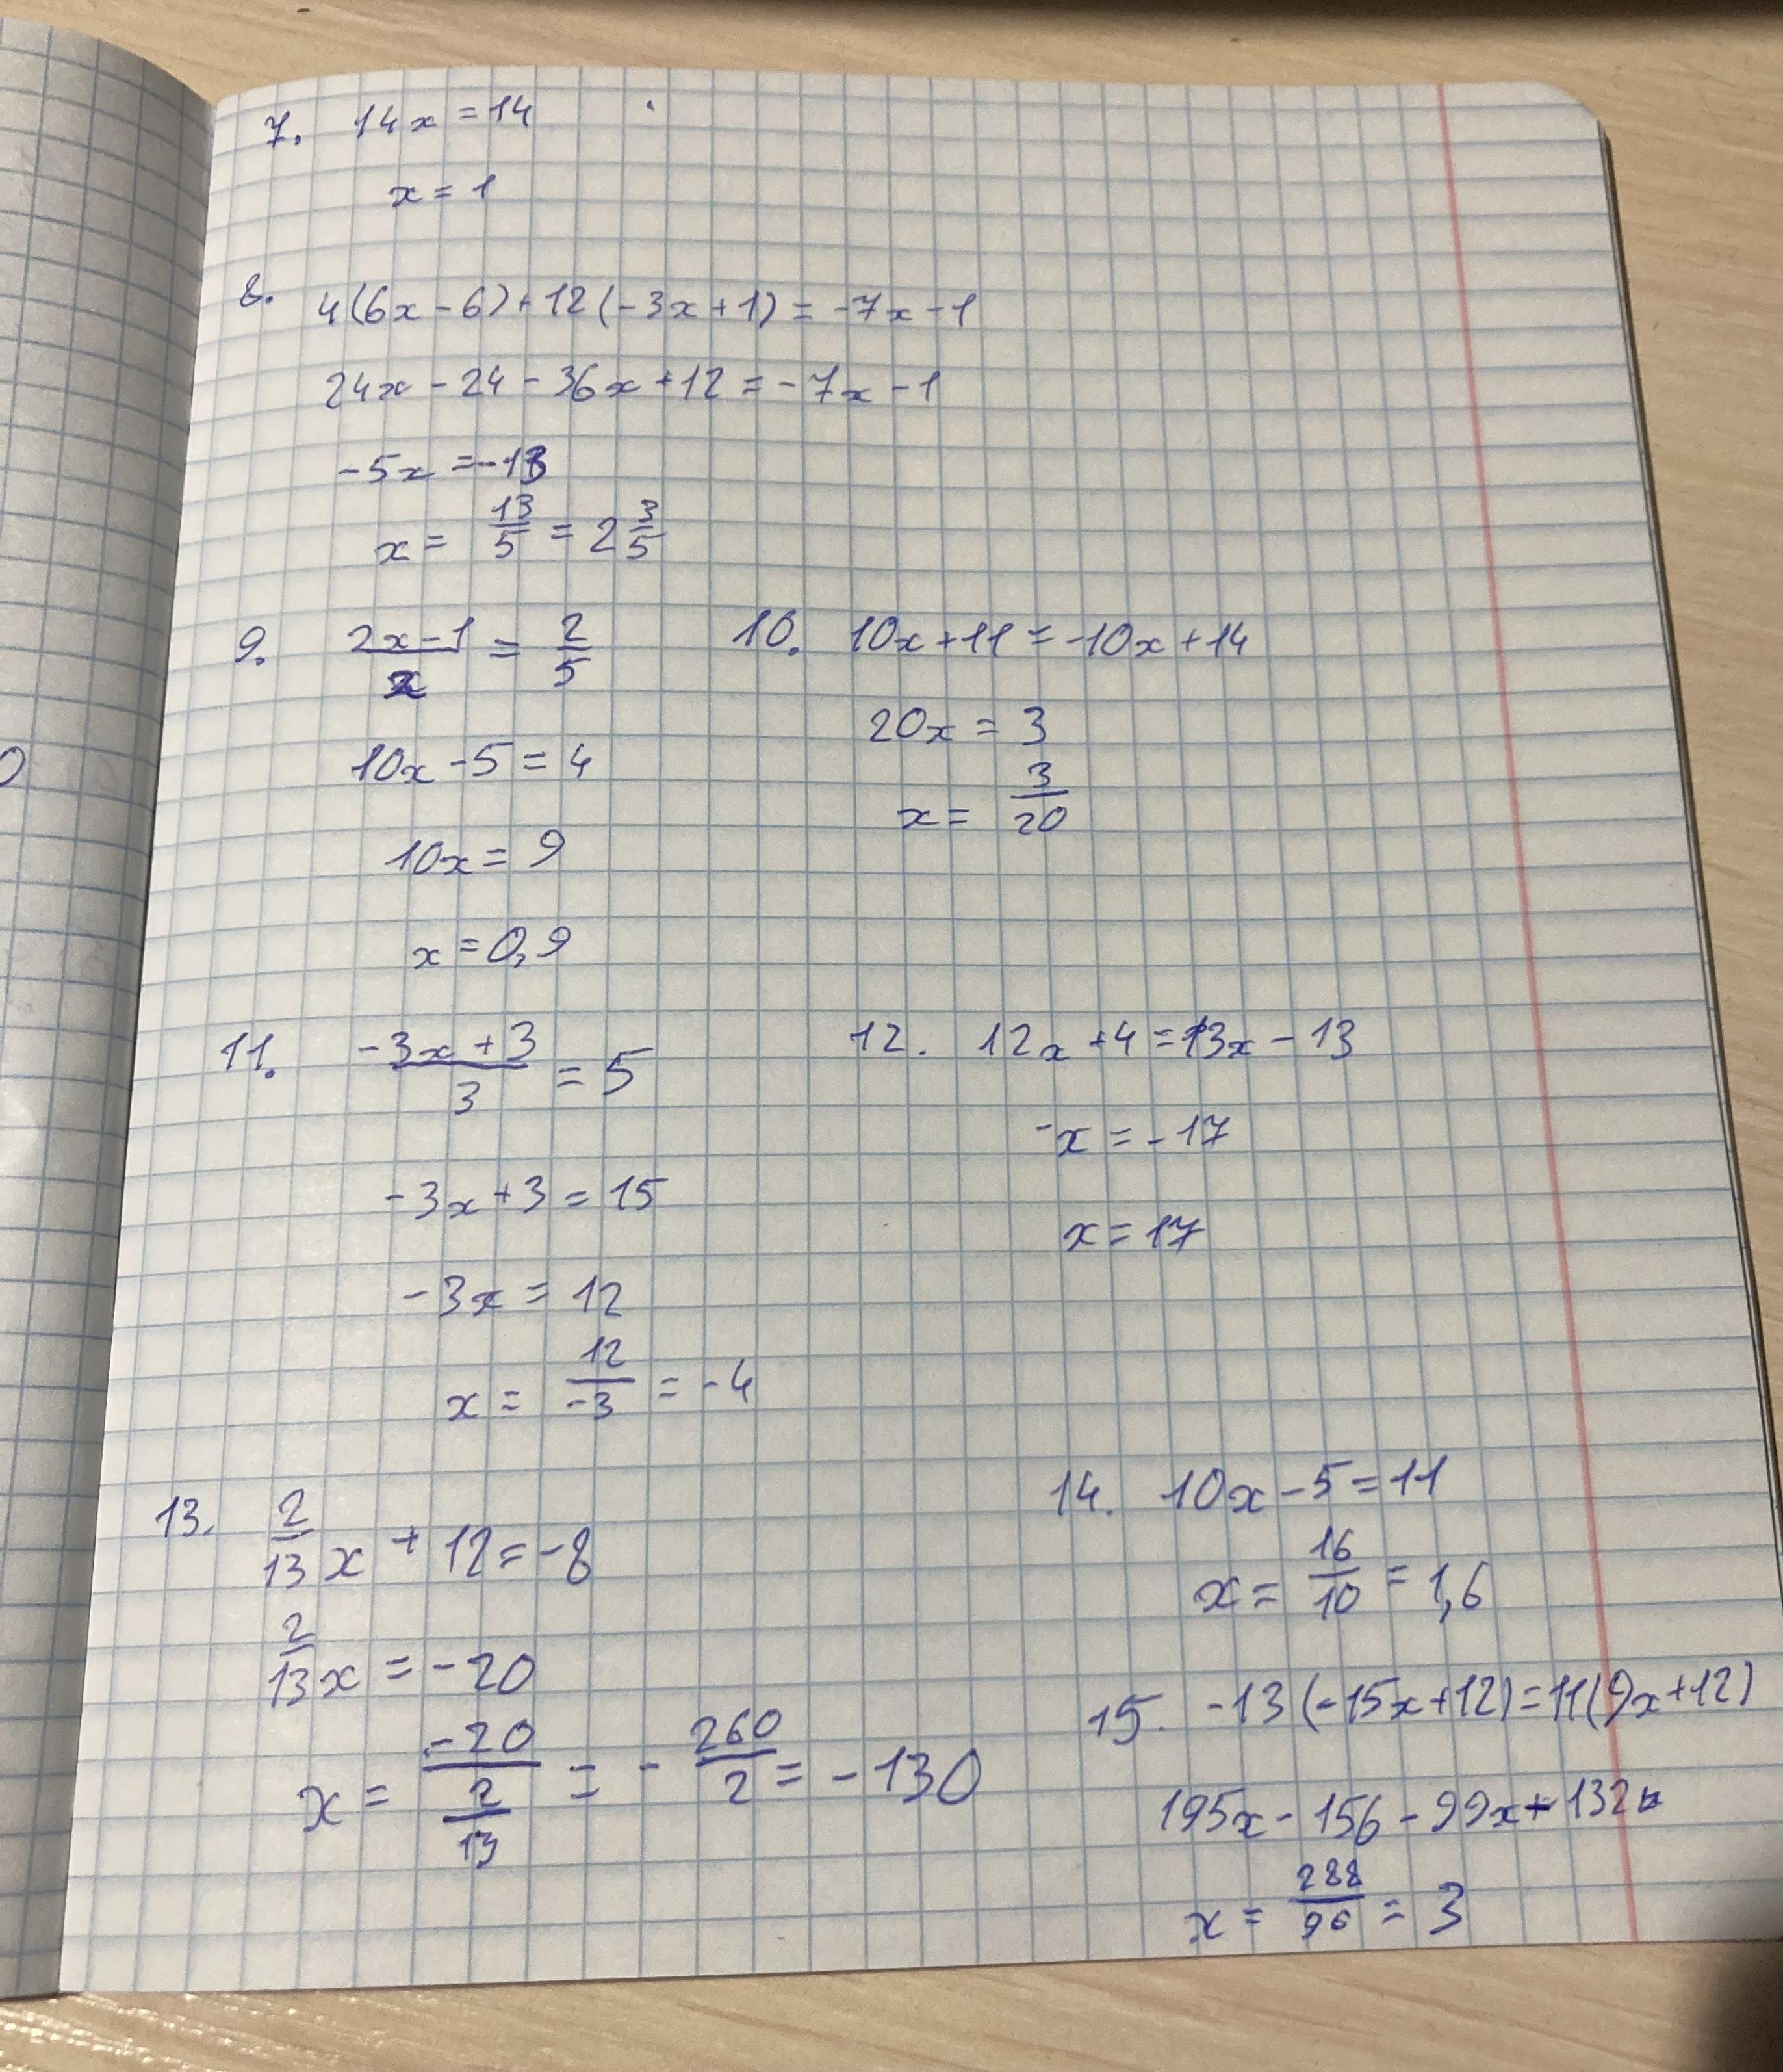 7. 14x = 14
x = 1
8. 4(6x - 6) + 12(-3x + 1) = -7x - 1
24x - 24 - 36x + 12 = -7x - 1
-5x = -13
x = 13/5 = 2 3/5
9. (2x - 1)/2 = 2/5
10x - 5 = 4
10x = 9
x = 0,9
10. 10x + 11 = -10x + 14
20x = 3
x = 3/20
11. (-3x + 3)/3 = 5
-3x + 3 = 15
-3x = 12
x = 12/-3 = -4
12. 12x + 4 = 13x - 13
-x = -17
x = 17
13. 2/13 x + 12 = -8
2/13 x = -20
x = -20/(2/13) = - 260/2 = -130
14. 10x - 5 = 11
x = 16/10 = 1,6
15. -13(-15x + 12) = 11(9x + 12)
195x - 156 - 99x + 132
x = 288/96 = 3